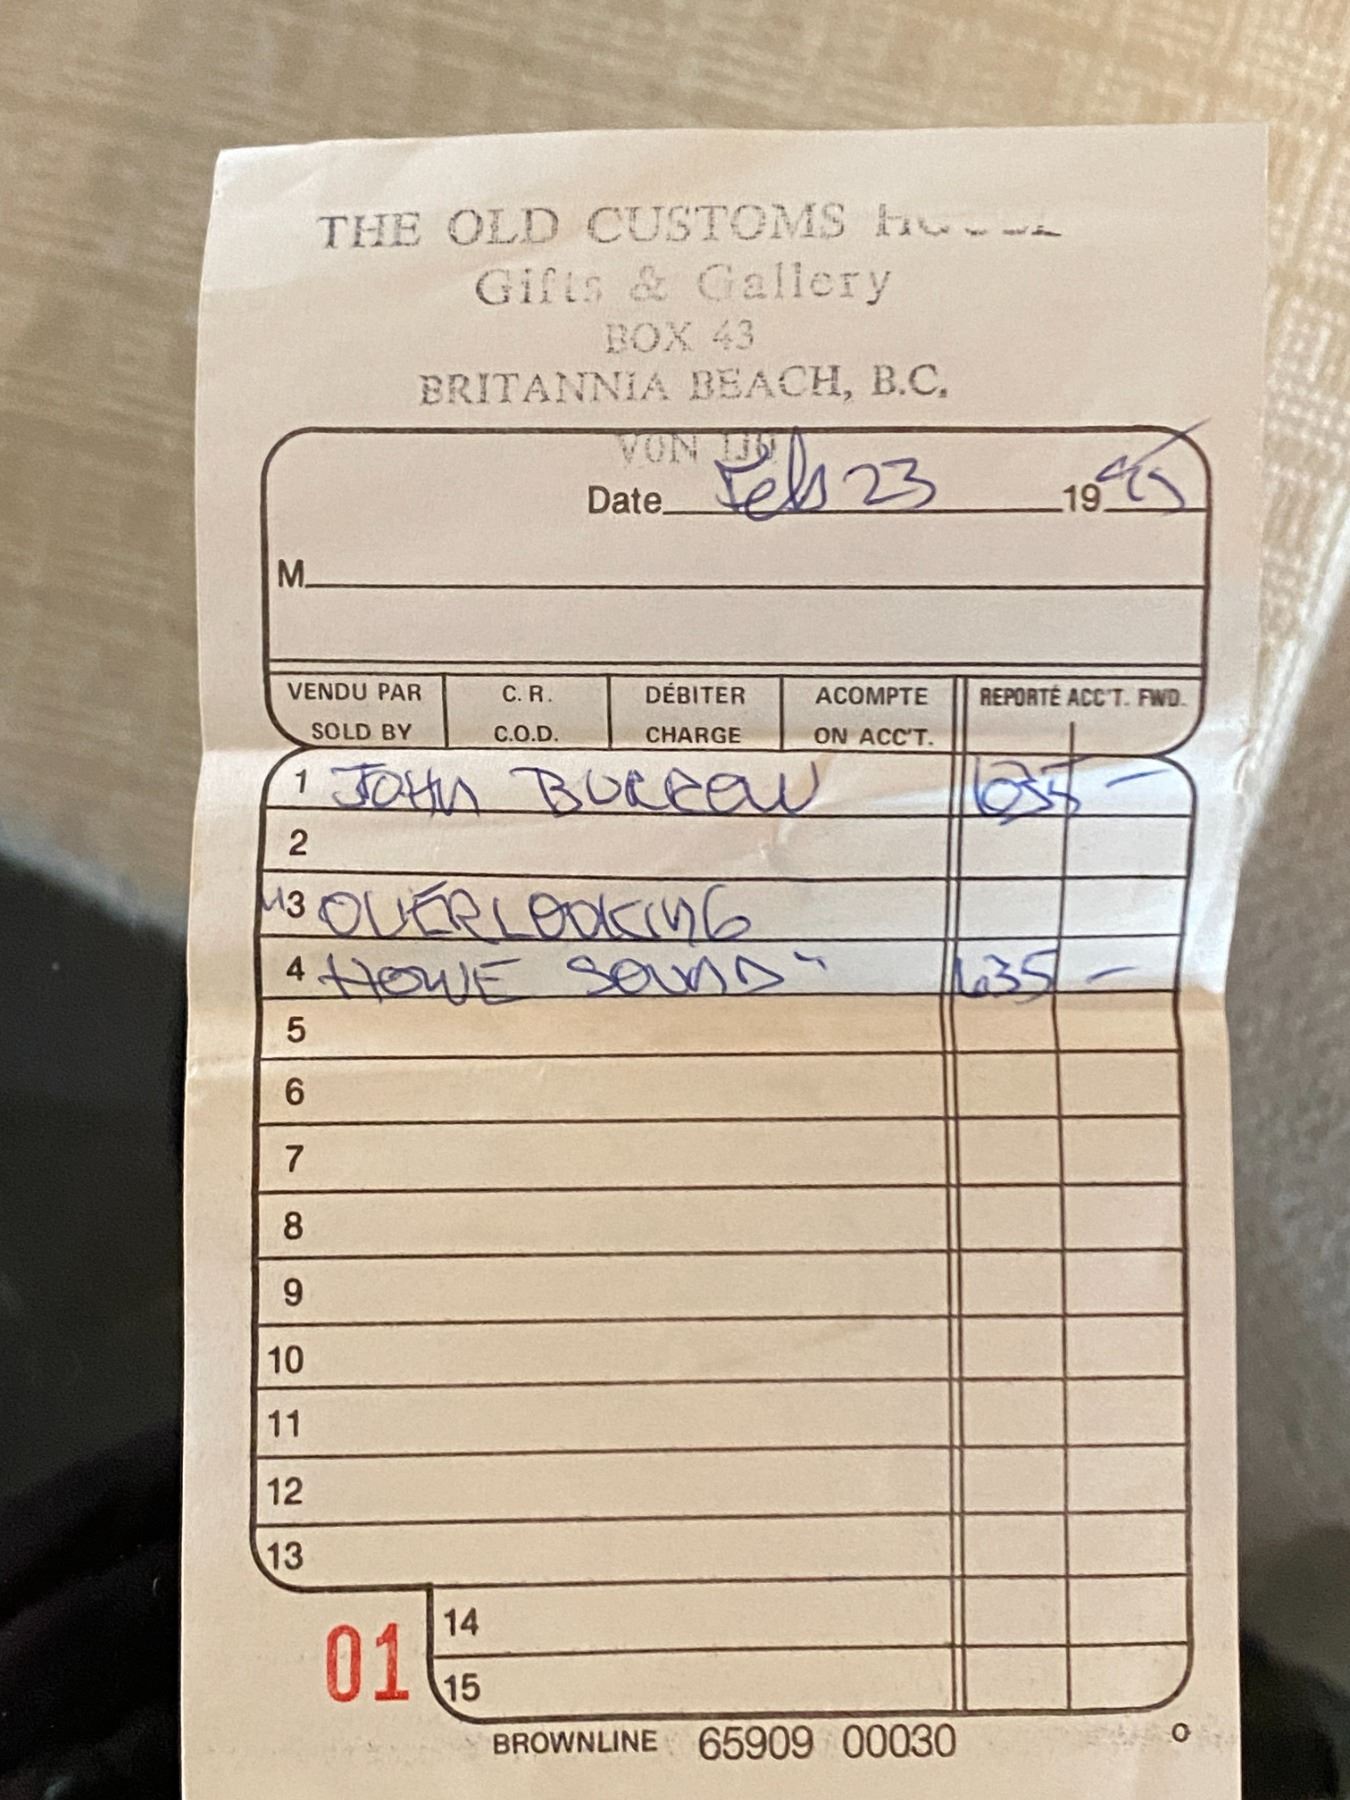 THE OLD CUSTOMS HOUSE
Gifts & Gallery
BOX 43
BRITANNIA BEACH, B.C.
V0N 1J0
Date Feb 23 1995
M
VENDU PAR C. R. DÉBITER ACOMPTE REPORTÉ ACC'T. FWD.
SOLD BY C.O.D. CHARGE ON ACC'T.
1 JOHN 635 -
2
3 "OVERLOOKING
4 HOWE SOUND" 635 -
5
6
7
8
9
10
11
12
13
14
01
15
BROWNLINE 65909 00030